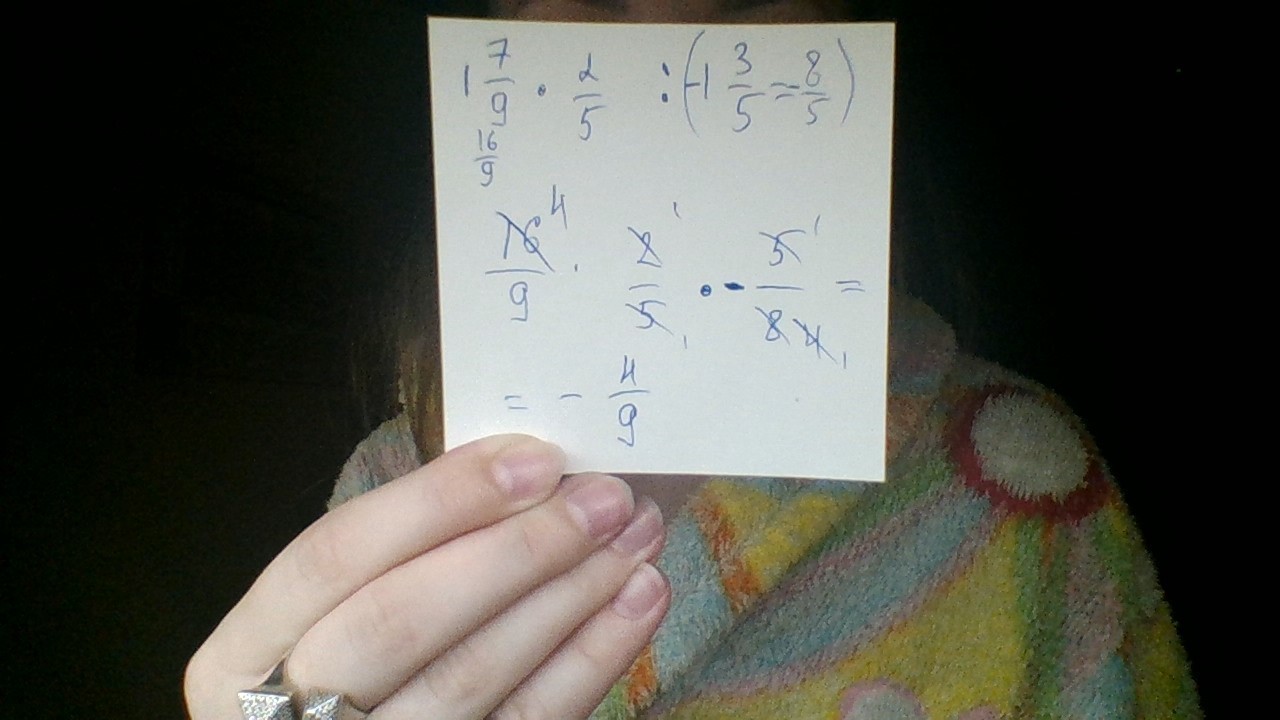 1 7/9 · 2/5 : (-1 3/5 = -8/5)
16/9
16 4/9 · 2 1/5 1 · - 5 1/8 4 1 =
= - 4/9